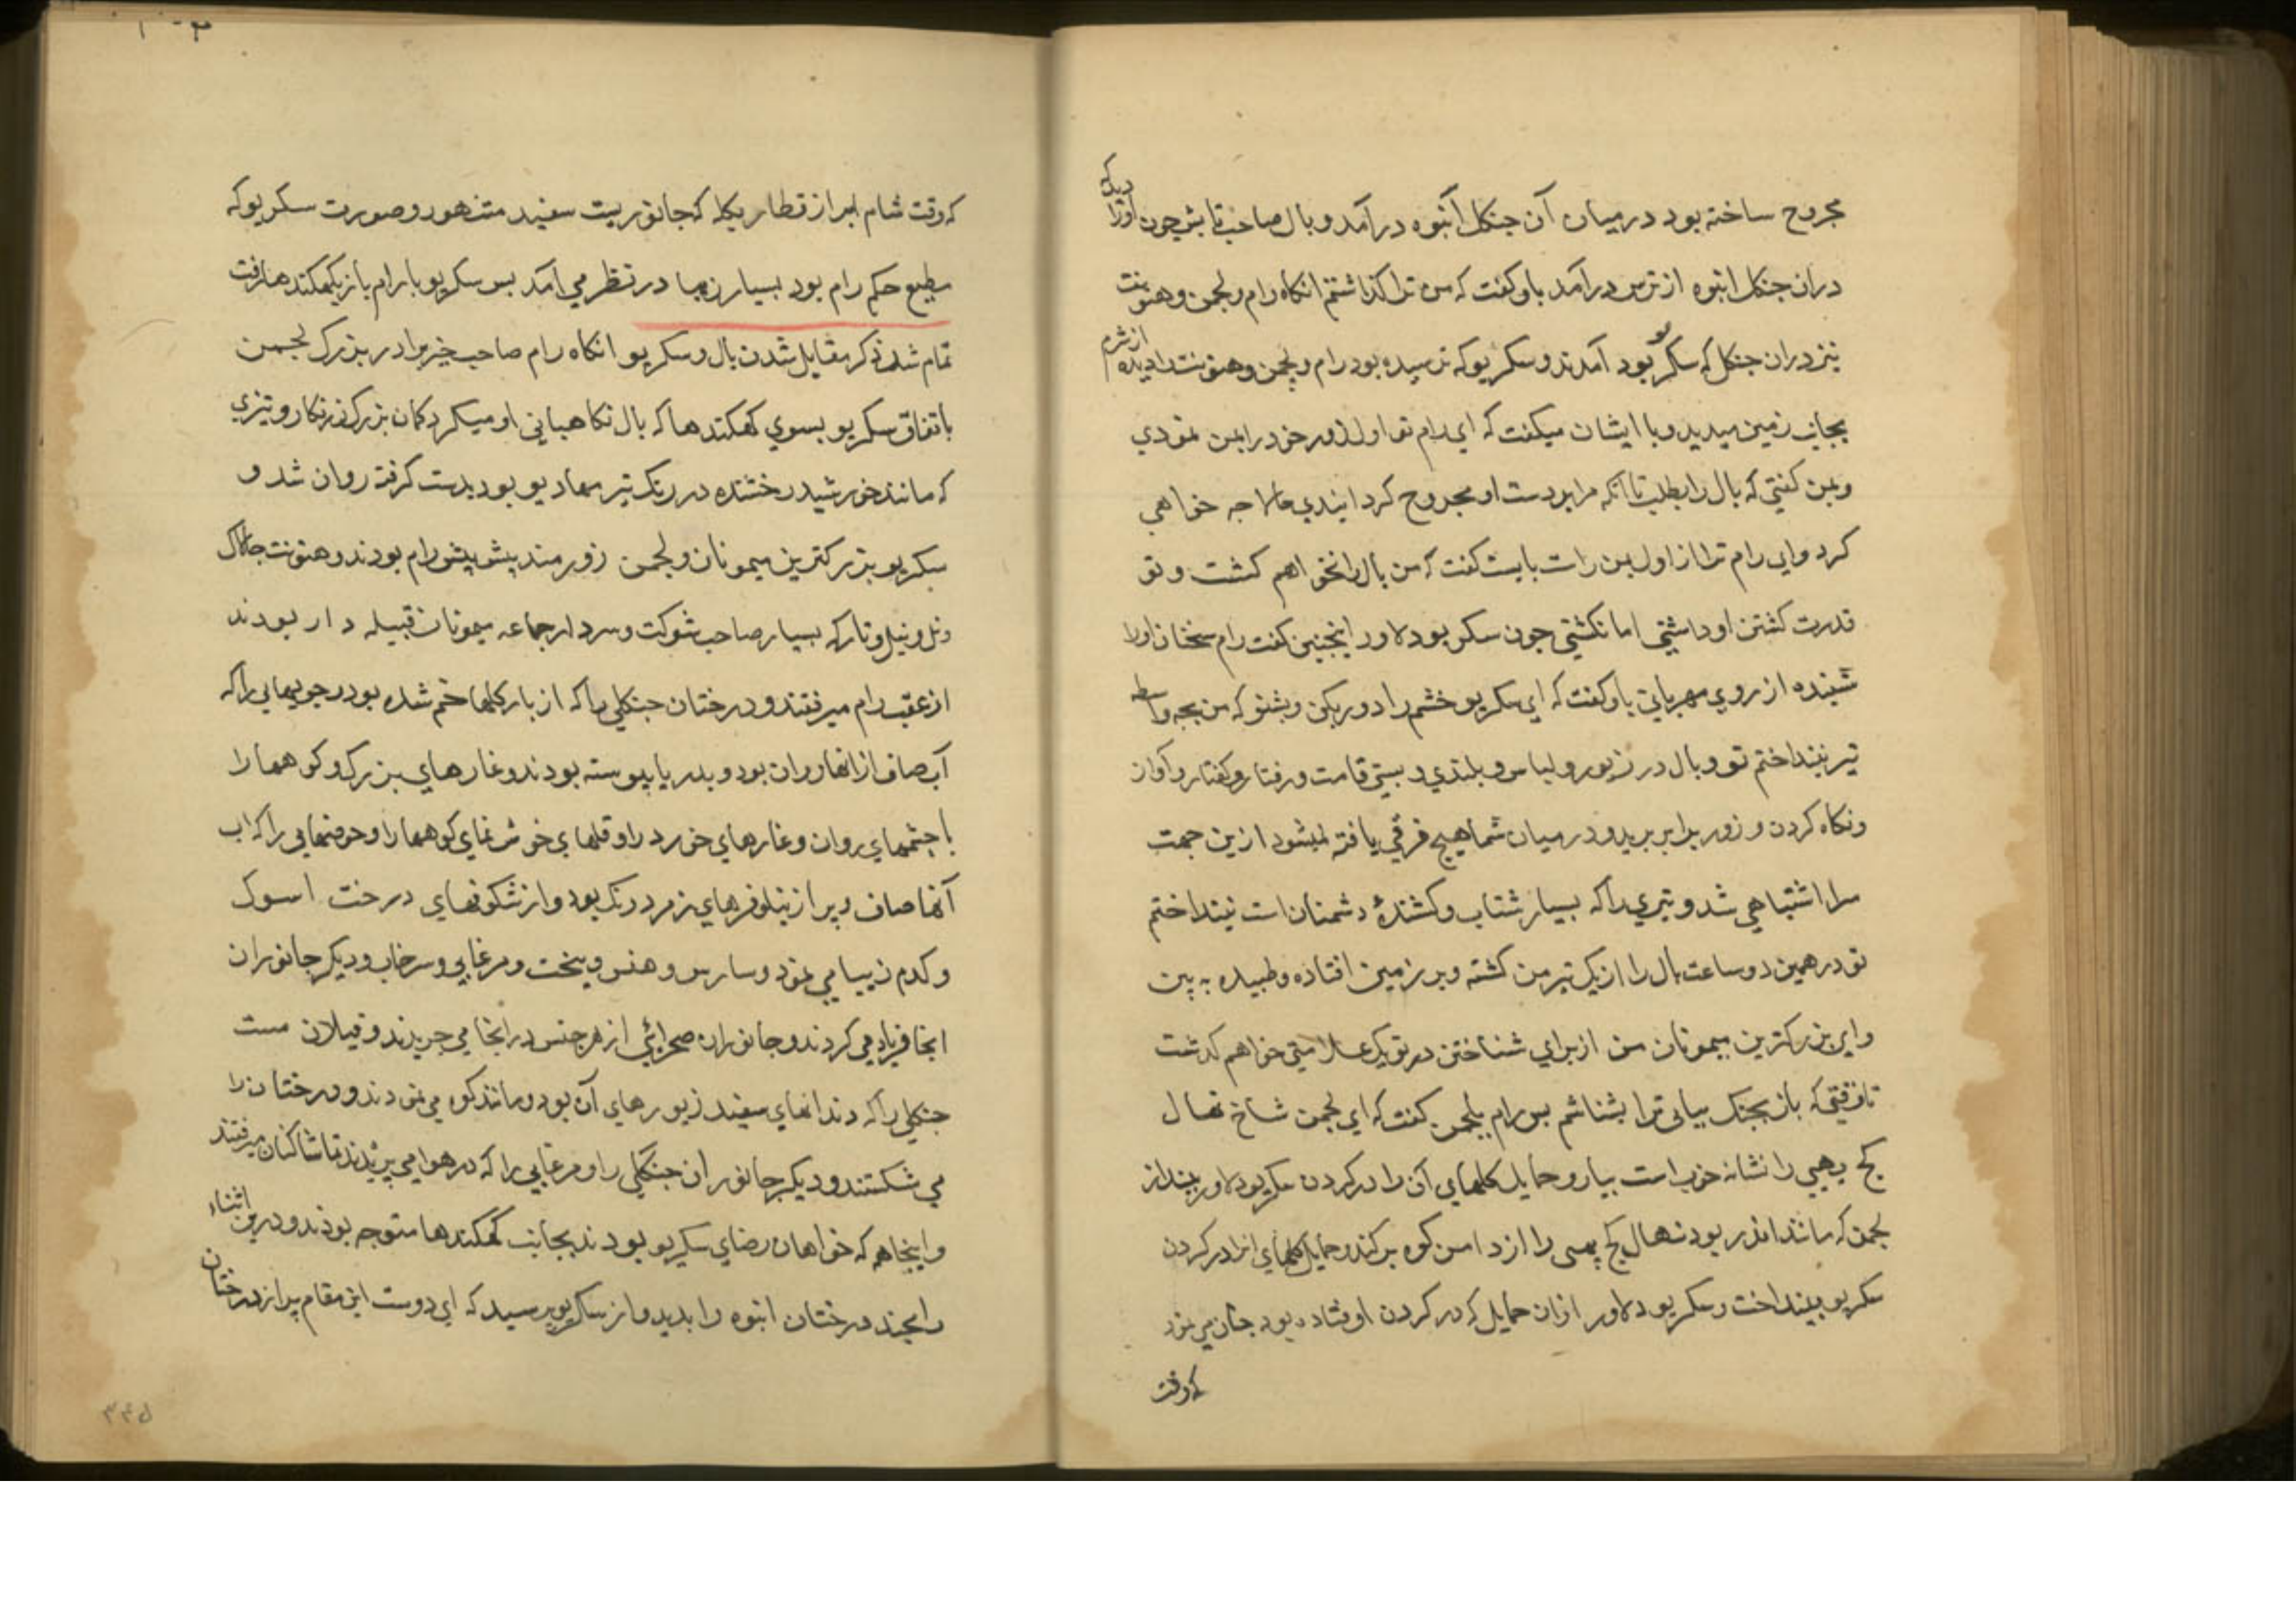 مجروح ساخته بود درمیان آن جنکل انبوه درآمد و بال صاحب تابش چون اورا دید که
دران جنکل انبوه از ترس درآمد باو کفت که من ترا کذاشتم انکاه رام و لجمن و هنونت
نیز دران جنکل که سکریو بود آمدند و سکریو که ترسیده بود رام و لجمن و هنونت را دیده از شرم
بجانب زمین میدید و با ایشان میکفت که ای رام تو اول زور خود را بمن نمودی
و بمن کفتی که بال را بطلب تا آنکه مرا بردست او مجروح کردانیدی مرا چه خواهی
کرد و ای رام ترا از اول بمن راست بایست کفت که من بال را نخواهم کشت و تو
قدرت کشتن او داشتی اما نکشتی جون سکریو دلاور اینجنین کفت رام سخنان اورا
شنیده از روی مهربانی باو کفت که ای سکریو خشم را دور بکن و بشنو که من بجه واسطه
تیر نینداختم تو و بال در زیور و لباس و بلندی و پستی قامت و رفتار و کفتار و آواز
و نکاه کردن و زور برابر برید و درمیان شما هیچ فرقی یافته نمیشود ازین جهت
مرا اشتباهی شد و تیری را که بسیار شتاب و کشندۀ دشمنان است نینداختم
تو در همین دو ساعت بال را از یک تیر من کشته و بر زمین افتاده و طپیده به بین
و ای بزرکترین میمونان من از برای شناختن در تو یک علامتی خواهم کذشت
تا وقتی که باز بجنک بیائی ترا بشناشم پس رام بلجمن کفت که ای لجمن شاخ نهال
کج پهپی را نشانه خوب است بیار و حمایل کلهای آن را در کردن سکریو دلاور بینداز
لجمن که مانند اندر بود نهال کج پهپی را از دامن کوه برکند و حمایل کلهای انرا در کردن
سکریو بینداخت و سکریو دلاور ازان حمایل که در کردن او فتاده بود جنان می نمود
که وقت
که وقت شام ابر از قطار بکله که جانوریست سفید متنهور و صورت سکریو که
مطیع حکم رام بود بسیار زیبا در نظر می آمد پس سکریو با رام باز بکهکندها رفت
تمام شد ذکر مقابل شدن بال و سکریو انکاه رام صاحب خیر برادر بزرک لجمن
باتفاق سکریو بسوی کهکندها که بال نکاهبانی او میکرد کمان بزرک زرنکار و تیزی
که مانند خورشید رخشنده در رنک تیر مهادیو بود بدست کرفته روان شد و
سکریو بزرکترین میمونان و لجمن زورمند پیش پیش رام بودند و هنونت جالاک
و نل و نیل و تار که بسیار صاحب شوکت و سردار جماعه میمونان قبیله دار بودند
از عقب رام میرفتند و درختان جنکلی را که از بار کلها خم شده بود و جویهایی را که
آب صاف از انها روان بود و بدریا پیوسته بودند و غارهای بزرک و کوهها را
با جشمهای روان و غارهای خورد را و قلهای خوش نمای کوهها را و حوضهایی را که آب
آنها صاف و پر از نیلوفرهای زمرد رنک بود و از شکوفهای درخت اسوک
و کدم زیبا می نمود و سارس و هنس و ینجت و مرغابی و سرخاب و دیکر جانوران
انجا فریاد می کردند و جانوران صحرائی از هر جنس در انجا می جریدند و فیلان مست
جنکلی را که دندانهای سفید زیورهای آن بود و مانند کوه می نمودند و درختان را
می شکستند و دیکر جانوران جنکلی را و مرغابی را که در هوا می پریدند تماشا کنان میرفتند
و اینجا هم که خواهان رضای سکریو بودند بجانب کهکندها متوجه بودند و درین اثناء
رامچند درختان انبوه را بدید و از سکریو پرسید که ای دوست این مقام پر از درختان
۳۳۵